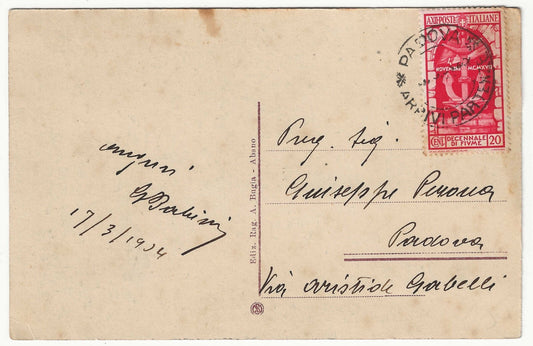 auguri
GBabini
17/3/1934
Ediz. Rag. A. Bugia - Abano
A.XII-POSTE ITALIANE
NOVEMBRE MCMXVIII
CENT. DECENNALE DI FIUME 20
PADOVA
ARRIVI PARTENZE
Preg. Sig.
Giuseppe Perona
Padova
Via Aristide Gabelli